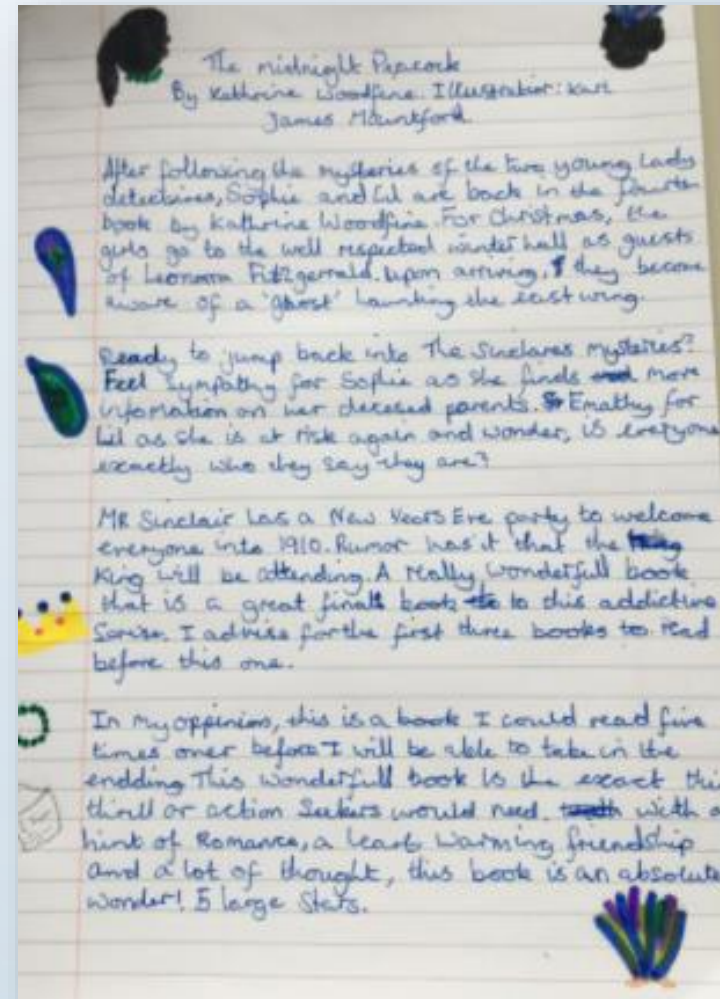 The midnight Peacock
By Kathrine Woodfine. Illustrator: Karl
James Mountford
After following the mysteries of the two young Lady
detectives, Sophie and Lil are back in the fourth
book by Kathrine Woodfine. For Christmas, the
girls go to the well respected winter hall as guests
of Leonora Fitzgerrald. Upon arriving, they become
aware of a 'ghost' haunting the east wing.
Ready to jump back into The Sinclares mysteries?
Feel sympathy for Sophie as she finds more
infomation on her deceased parents. Emathy for
Lil as she is at risk again and wonder, is everyone
exactly who they say they are?
MR Sinclair has a New Years Eve party to welcome
everyone into 1910. Rumor has it that the
King will be attending. A really wonderfull book
that is a great final book to this addictive
I advise for the first three books to read
before this one.
In my oppinion, this is a book I could read five
times over before I will be able to take in the
endding This wonderfull book is the exact
thrill or action Seekers would need. with a
hint of Romance, a heart warming friendship
and a lot of thought, this book is an absolute
wonder! 5 large Stars.